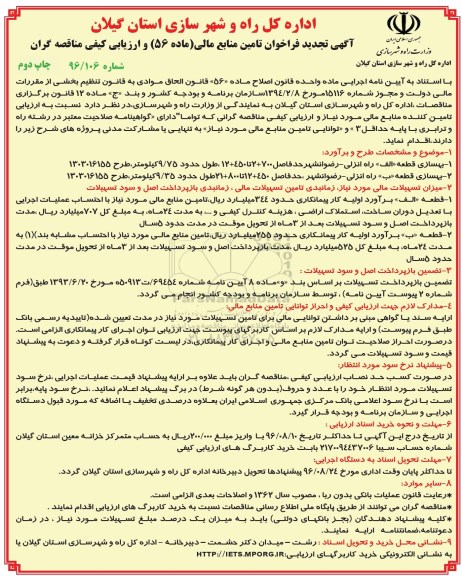 جمهوری اسلامی ایران
وزارت راه و شهرسازی
اداره کل راه و شهر سازی استان گیلان
اداره کل راه و شهر سازی استان گیلان
آگهی تجدید فراخوان تامین منابع مالی(ماده ۵۶) و ارزیابی کیفی مناقصه گران
شماره ۹۶/۱۰۶
چاپ دوم
با استناد به آیین نامه اجرایی ماده واحده قانون اصلاح ماده «۵۶» قانون الحاق موادی به قانون تنظیم بخشی از مقررات
مالی دولت و مجوز شماره ۱۵۱۱۶مورخ ۱۳۹۴/۲/۸سازمان برنامه و بودجه کشور و بند «ج» ماده ۱۲ قانون برگزاری
مناقصات ،اداره کل راه و شهرسازی استان گیلان به نمایندگی از وزارت راه و شهرسازی،در نظر دارد نسبت به ارزیابی
تامین کننده منابع مالی مورد نیاز و ارزیابی کیفی مناقصه گرانی که تواما"دارای «گواهینامه صلاحیت معتبر در رشته راه
و ترابری با پایه حداقل ۳ » و «توانایی تامین منابع مالی مورد نیاز» به تنهایی یا مشارکت مدنی پروژه های شرح زیر را
دارند،اقدام نماید.
۱-موضوع و مشخصات طرح و برآورد:
۱-بهسازی قطعه«الف» راه انزلی-رضوانشهرحدفاصل۲+۷۰۰تا۱۲+۴۵۰ ،طول حدود ۹/۷۵کیلومتر،طرح ۱۳۰۳۰۱۶۱۵۵
۲-بهسازی قطعه«ب» راه انزلی-رضوانشهر ،حدفاصل ۱۲+۴۵۰تا۲۱+۸۰۰طول حدود ۹/۳۵ کیلومتر،طرح ۱۳۰۳۰۱۶۱۵۵
۲-میزان تسهیلات مالی مورد نیاز، زمانبندی تامین تسهیلات مالی ، زمانبندی بازپرداخت اصل و سود تسهیلات
۱-قطعه «الف» برآورد اولیه کار پیمانکاری حدود ۳۴۴میلیارد ریال،تامین منابع مالی مورد نیاز با احتساب عملیات اجرایی
با تعدیل دوران ساخت، استملاک اراضی ، هزینه کنترل کیفی و ... به مدت ۲۴ماه، به مبلغ کل ۷۰۷میلیارد ریال ،مدت
بازپرداخت اصل و سود تسهیلات بعد از ۳ماه از تحویل موقت در مدت حدود ۵سال
۲-قطعه «ب» برآورد اولیه کار پیمانکاری حدود ۲۵۵میلیارد ریال،تامین منابع مالی مورد نیاز با احتساب مشابه بند(۱) به
مدت ۲۴ماه، به مبلغ کل ۵۲۵میلیارد ریال ،مدت بازپرداخت اصل و سود تسهیلات بعد از ۳ماه از تحویل موقت در مدت
حدود ۵سال
۳-تضمین بازپرداخت اصل و سود تسهیلات :
تضمین بازپرداخت تسهیلات بر اساس بند «و»ماده ۸ آیین نامه شماره ۶۹۴۵۴/ت۵۰۹۱۳ه مورخ ۱۳۹۳/۶/۲۰ طبق(فرم
شماره ۲ پیوست آیین نامه) ، توسط سازمان برنامه و بودجه کشور انجام می گردد.
۴-مدارک لازم جهت ارزیابی کیفی و احراز توانایی تامین منابع مالی:
ارایه سند یا گواهی مبنی بر داشتن توانایی مالی برای تامین تسهیلات مورد نیاز در مدت تعیین شده(تاییدیه رسمی بانک
طبق فرم پیوست) و ارایه مدارک لازم بر اساس کاربرگهای پیوست جهت ارزیابی توان اجرای کار پیمانکاری الزامی است.
درصورت احراز صلاحیت توان تامین منابع مالی و اجرای کار پیمانکاری،در لیست کوتاه قرار گرفته و دعوت به پیشنهاد
قیمت و سود تسهیلات می گردد.
۵-پیشنهاد نرخ سود مورد انتظار:
در صورت کسب حد نصاب ارزیابی کیفی ،مناقصه گران باید علاوه بر ارایه پیشنهاد قیمت عملیات اجرایی ،نرخ سود
تسهیلات مورد انتظار خود را با عدد و حروف(بدون هر گونه شرط) در برگ پیشنهاد اعلام نمائید. ،نرخ سود پایه،برابر
است با نرخ سود اعلامی بانک مرکزی جمهوری اسلامی ایران بعلاوه درصدی تخفیف یا اضافه که مورد قبول دستگاه
اجرایی و سازمان برنامه و بودجه قرار گیرد.
۶-مهلت و نحوه خرید اسناد ارزیابی :
از تاریخ درج این آگهی تا حداکثر تاریخ ۹۶/۰۸/۱۰ با واریز مبلغ ۲۰۰/۰۰۰ریال به حساب متمرکز خزانه معین استان گیلان
شماره حساب سیبا ۲۱۷۰۰۹۴۴۳۷۰۰۶ بابت خرید کاربرگ های ارزیابی کیفی
۷-مهلت تحویل اسناد به دستگاه اجرایی:
تا حداکثر پایان وقت اداری مورخ ۹۶/۰۸/۲۴ پیشنهادها تحویل دبیرخانه اداره کل راه و شهرسازی استان گیلان گردد.
۸-سایر موارد:
*رعایت قانون عملیات بانکی بدون ربا ، مصوب سال ۱۳۶۲ و اصلاحات بعدی الزامی است.
*مناقصه گران می توانند از طریق پایگاه ملی اطلاع رسانی مناقصات نسبت به خرید کاربرگ های ارزیابی اقدام نمایند .
*کلیه پیشنهاد دهندگان (بجز بانکهای دولتی) باید به میزان یک درصد مبلغ تسهیلات مورد نیاز ، در زمان
دعوتنامه،ضمانتنامه ارایه نمایند.
۹-نشانی محل خرید و تحویل اسناد : رشت – میدان دکتر حشمت – دبیرخانه – اداره کل راه و شهرسازی استان گیلان یا
به نشانی الکترونیکی خرید کاربرگهای ارزیابی:HTTP://IETS.MPORG.IR